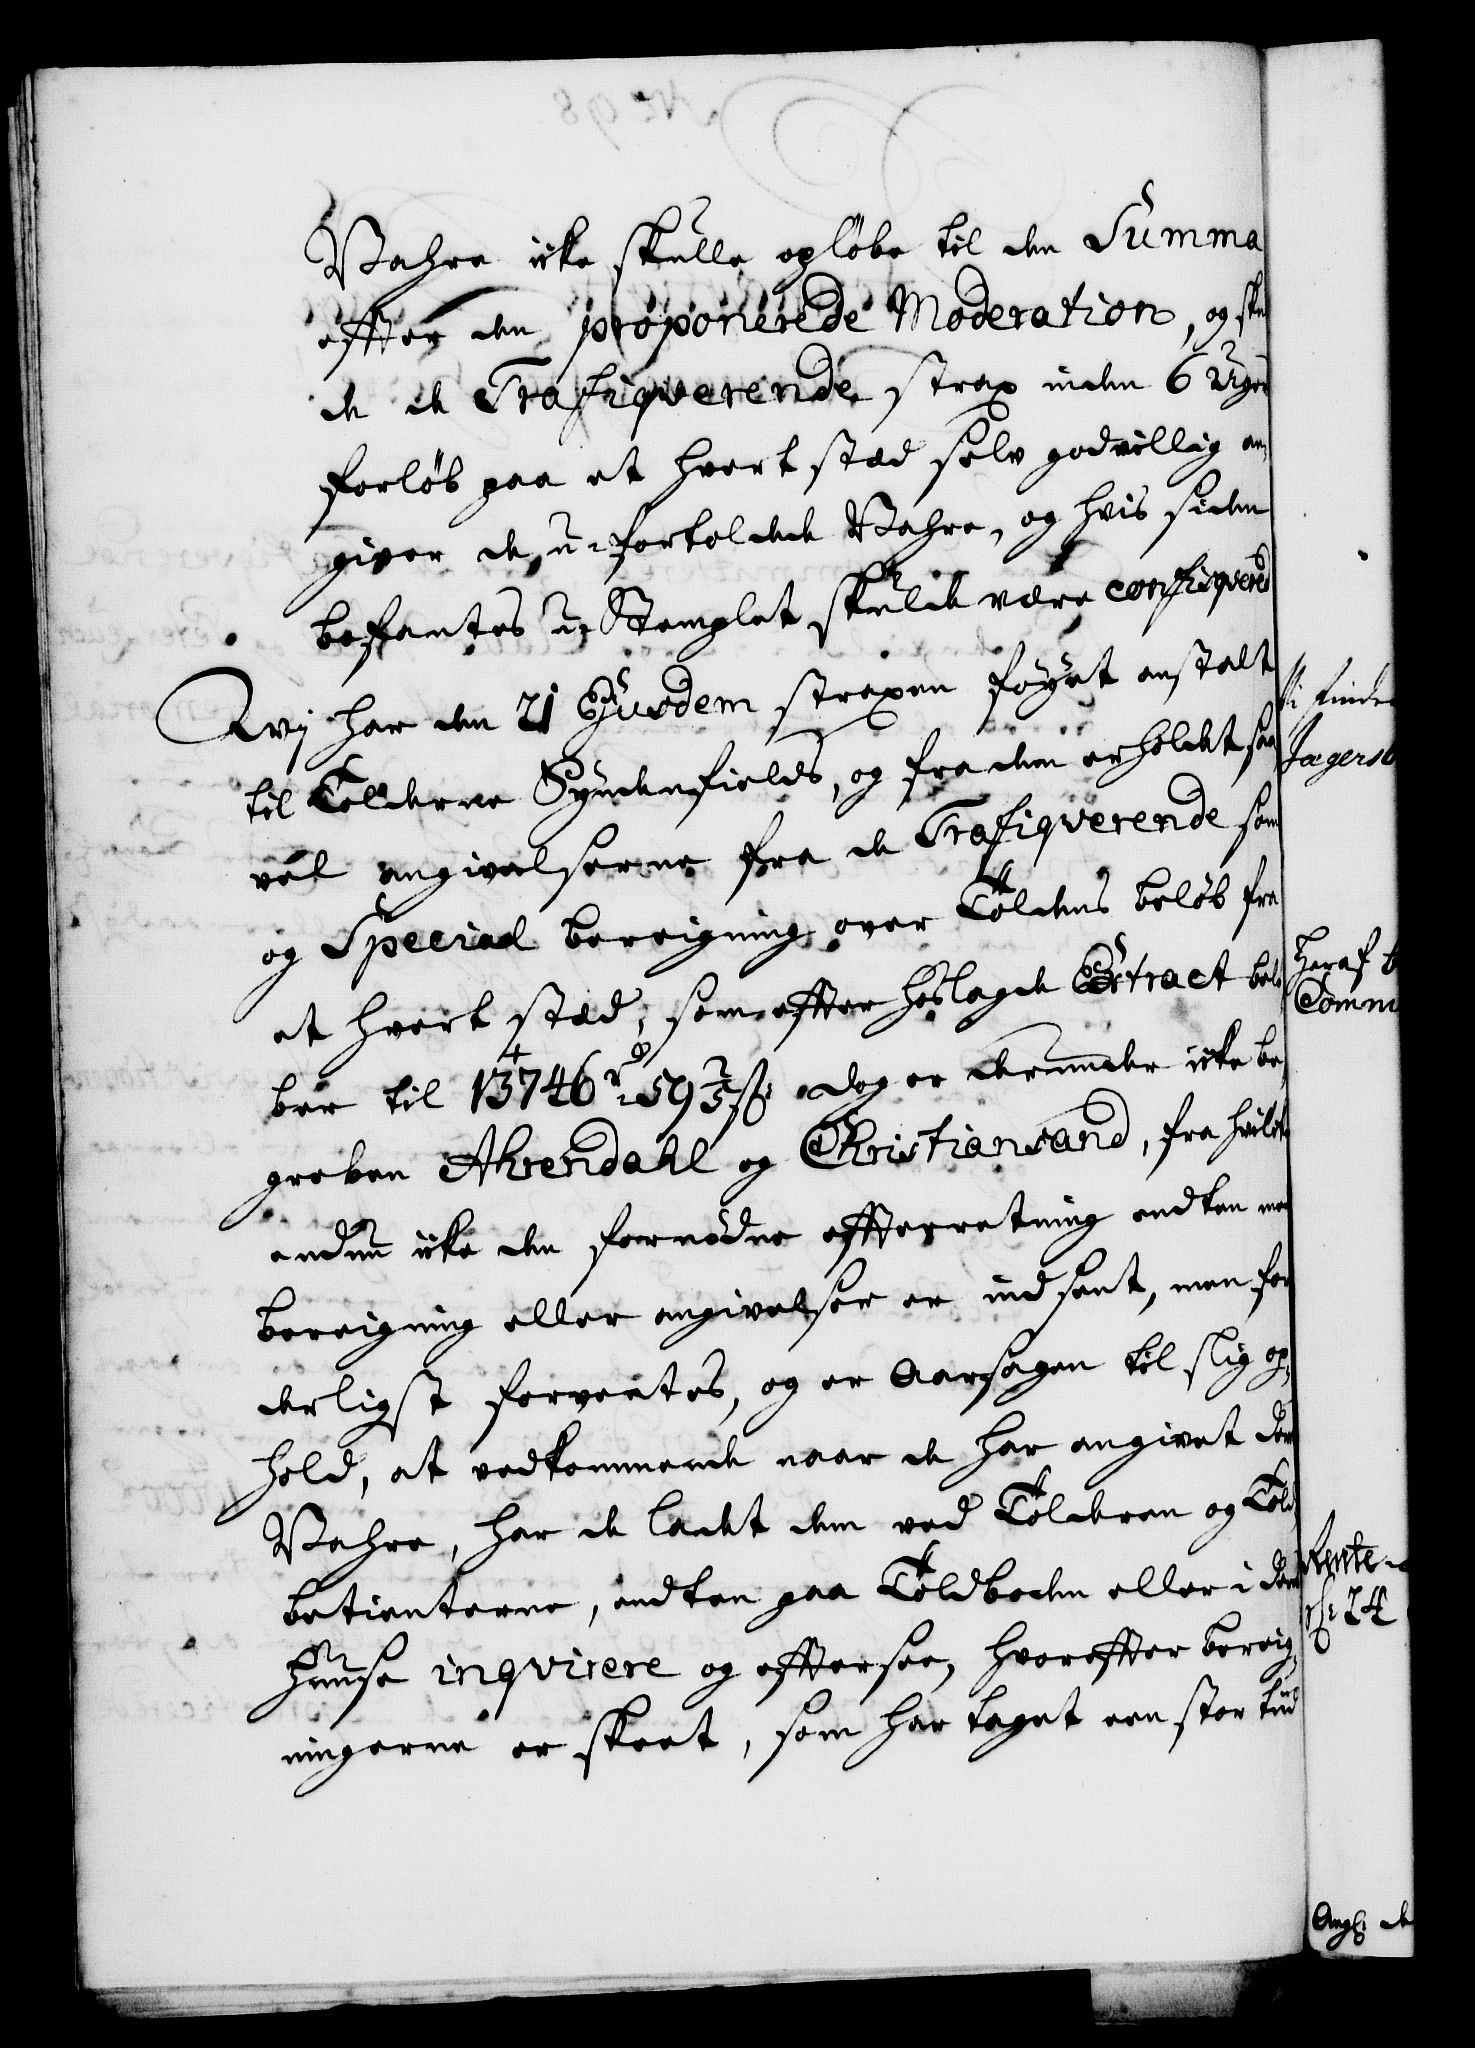 Vahre icke skulle opløbe til den Summa
effter den proponerede Moderation, og
de de Trafiqverende strax inden 6 Uger
forløb paa et hvert stæd selv godvillig an-
giver de u-fortoldede Vahre, og hvis siden
befantes u-Stemplet skulde være confisqvered
Wij har den 21 Ejusdem straxen føyet anstalt
til Tolderne Syndenfields, og fra dem erholdet saa
vel angivelserne fra de Trafiqverende som
og Special bereigning over Toldens beløb fra
et hvert stæd, som effter hoslagde Extract belø
ber til 13746 rd 59 2/5 ß dog er derunder icke be-
greben Ahrendahl og Christiansand, fra hvilcke
endnu icke den fornødne effterretning endten med
bereigning eller angivelser er indsent, men for
derligst forventes, og er Aarsagen til slig op-
hold, at vedkommende naar de har angivet der
Vahre, har de ladet dem ved Tolderen og Told
betienterne, endten paa Toldboden eller i der
Huuse inqvirere og efftersee, hvoreffter bereig-
ningerne er skeet, som har taget een stor tiid
Vi finde
Jagersb
Heraf
Comm
Rente
24
Ang: de